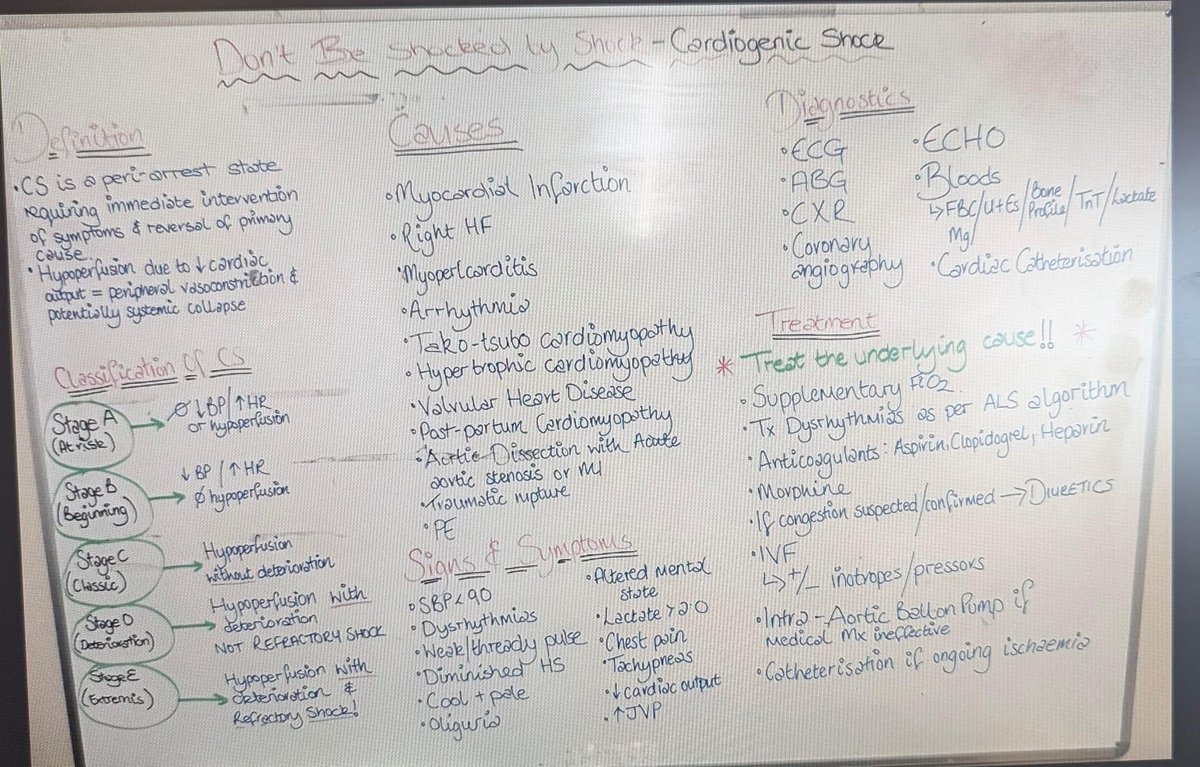 Don't Be Shocked by Shock - Cardiogenic Shock
Definition
• CS is a peri-arrest state
requiring immediate intervention
of symptoms & reversal of primary
cause.
• Hypoperfusion due to ↓ cardiac
output = peripheral vasoconstriction &
potentially systemic collapse
Classification of CS
Stage A
(At risk)
→ ∅ ↓BP/↑HR
or hypoperfusion
Stage B
(Beginning)
→ ↓BP/↑HR
∅ hypoperfusion
Stage C
(Classic)
→ Hypoperfusion
without deterioration
Stage D
(Deterioration)
→ Hypoperfusion with
deterioration
NOT REFRACTORY SHOCK
Stage E
(Extremis)
→ Hypoperfusion with
deterioration &
Refractory Shock!
Causes
• Myocardial Infarction
• Right HF
• Myoper(carditis
• Arrhythmia
• Tako-tsubo cardiomyopathy
• Hypertrophic cardiomyopathy
• Valvular Heart Disease
• Post-partum Cardiomyopathy
• Aortic Dissection with Acute
aortic stenosis or MI
• Traumatic rupture
• PE
Signs & Symptoms
• SBP<90
• Dysrhythmias
• Weak/thready pulse
• Diminished HS
• Cool + pale
• Oliguria
• Altered mental
state
• Lactate >2.0
• Chest pain
• Tachypneas
• ↓ cardiac output
• ↑JVP
Diagnostics
• ECG
• ABG
• CXR
• Coronary
angiography
• ECHO
• Bloods
↳ FBC/U+Es/Bone
Profile/TnT/Lactate
Mg/
• Cardiac Catheterisation
Treatment
* Treat the underlying cause!! *
• Supplementary FiO2
• Tx Dysrhythmias as per ALS algorithm
• Anticoagulants: Aspirin, Clopidogrel, Heparin
• Morphine
• If congestion suspected/confirmed → DIURETICS
• IVF
↳ +/- inotropes/pressors
• Intra-Aortic Ballon Pump if
Medical Mx ineffective
• Catheterisation if ongoing ischaemia